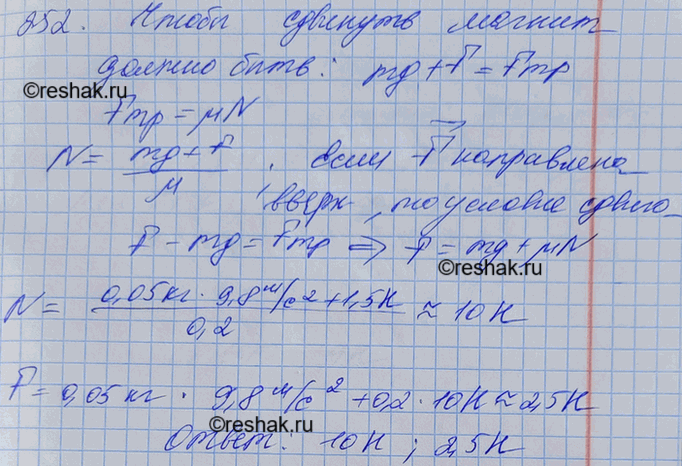 852. Чтобы сдвинуть магнит
должно быть: mg + F = Fтр
©reshak.ru
Fтр = μN
N = (mg + F)/μ, если F⃗ направлена
вверх, то условие сдвига
©reshak.ru
F - mg = Fтр ⇒ F = mg + μN
©reshak.ru
N = (0,05 кг · 9,8 м/с² + 1,5 Н)/0,2 ≈ 10 Н
F = 0,05 кг · 9,8 м/с² + 0,2 · 10 Н ≈ 2,5 Н
Ответ: 10 Н ; 2,5 Н
©reshak.ru